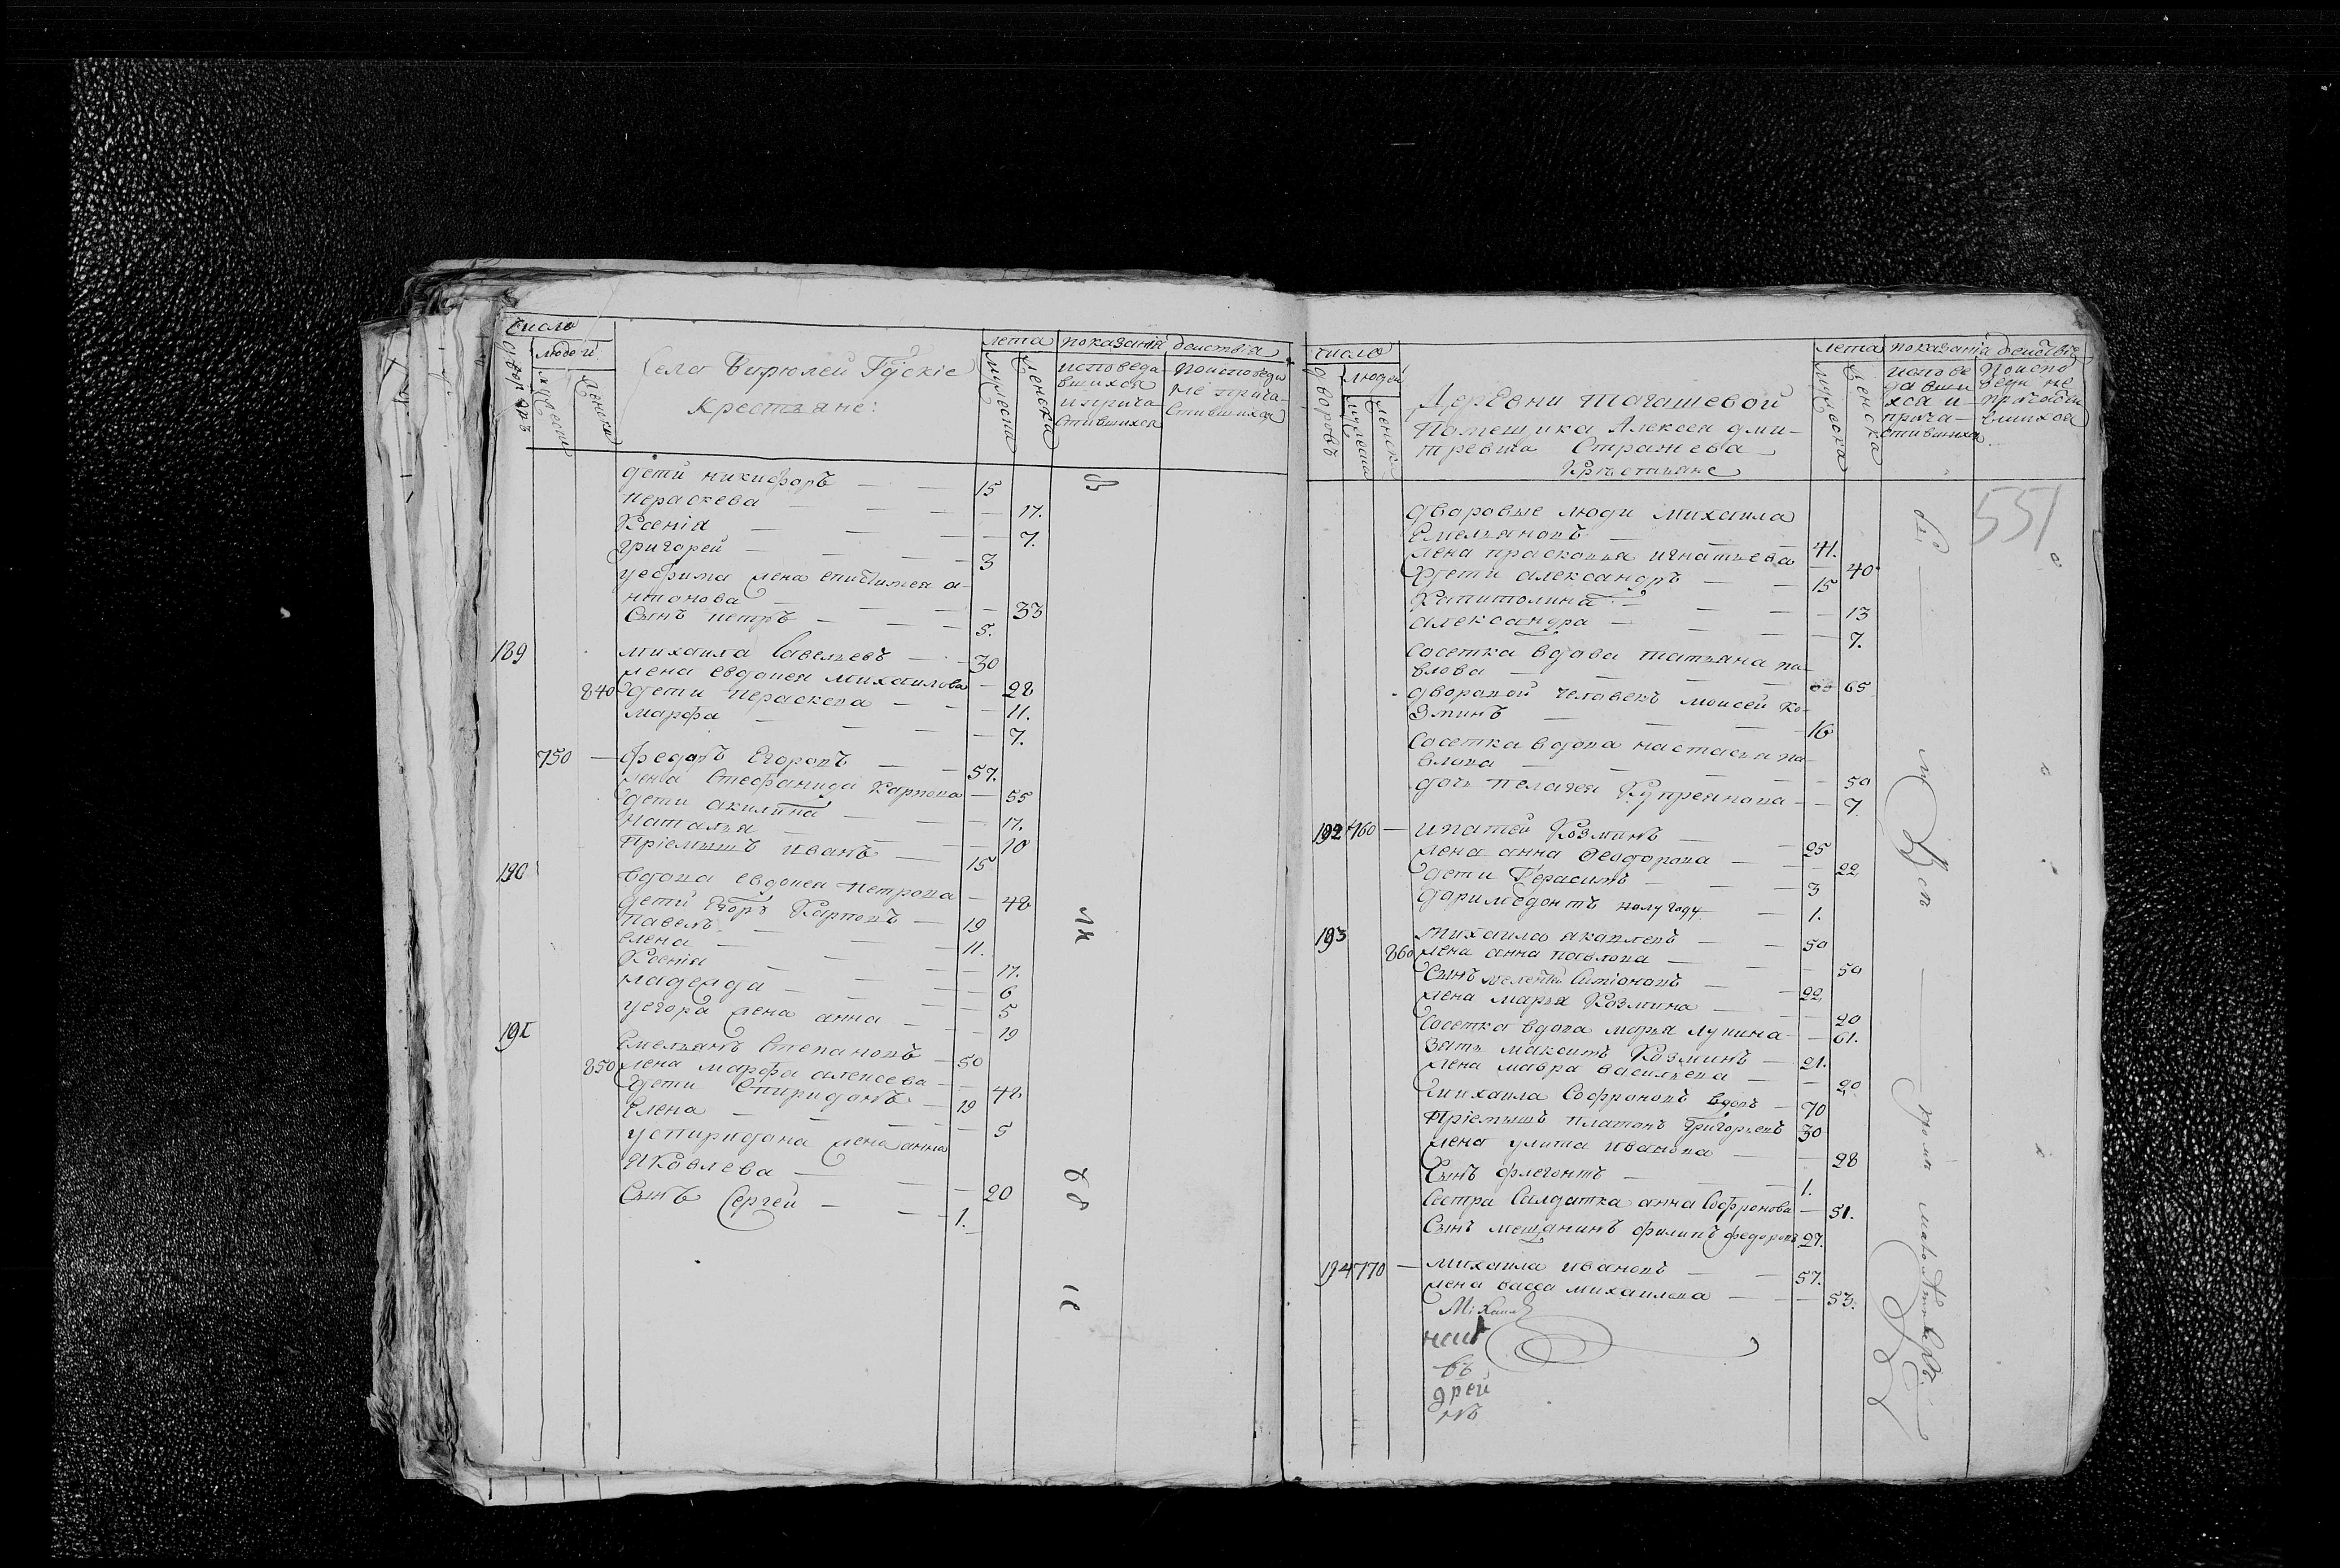 число
людей
дворовъ
мужеска
женска
Село Бирюлей Рускіе
крестьяне:
лета
мужеска
женска
показанія действія
исповеда-
вшихся
и прича-
стившихся
Поисповеди
не прича-
стившихся
дети никифоръ — — 15
Пераскева — — — 17.
Ксенія — — — 7.
Григорей — — — 3
у ефима жена епистимея а-
нтонова — — — 33
сынъ петръ — — — 5.
189 михаила Савельевъ — — 30
жена евдокея михаилова — 28
840 дети Пераскева — — — 11.
марфа — — — 7.
750 — федоръ Егоровъ — — 57.
жена Стефанида Карпова — 55
дети акилина — — — 17.
Наталья — — — 10
Пріемышъ иванъ — 15
190 вдова евдокея петрова — 48
дети Егоръ Карповъ — 19
павелъ — — — 11.
елена — — — 17.
Ксенія — — — 6
надежда — — — 5
у егора жена анна — — 19
191 Емельянъ Степановъ — 50
850 жена марфа алексева — — 48
дети Спиридонъ — 19
Елена — — — 5
у спиридона жена анна
Яковлева — — — 20
Сынъ Сергей — — — 1.
число
людей
дворовъ
мужеска
женска
Деревни тагашевой
Помещика Алексея дми-
тревича Стражева
Крестьяне
лета
мужеска
женска
показанія действія
испове
давши
хся и
прича-
стившихся
Поиспо
веди не
причасти
вшихся
551
дворовые люди михаила
Емельяновъ — — — 41.
жена прасковья игнатьева — 40
дети александръ — — 15
Капитолина — — — 13
александра — — — 7.
Соседка вдова татьяна па-
влова — — — 65
дворовой человекъ моисей ко-
зминъ — — — 16
Соседка вдова настасья па-
влова — — — 50
дочь пелагея Купреянова — — 7
192 760 — ипатей Козминъ — — 25
жена анна Феодорова — — 22
дети Герасимъ — — 3
доримедонтъ полугоду — 1.
193 михаила яковлевъ — — 50
860 жена анна павлова — — 50
Сынъ мелетій Симіоновъ — 22
жена марья Козмина — — 20
Соседка вдова марья лукина — 61.
Зять максимъ Козминъ — 21.
жена мавра васильева — — 20
михаила Софроновъ вдовъ — 70
Пріемышъ платонъ Григорьевъ 30
жена улита иванова — — 28
Сынъ флегонтъ — — 1.
Сестра Салдатка анна Софронова — 51.
Сынъ мещанинъ филипъ федоровъ 27.
194 770 — михаила ивановъ — — 57.
жена васса михаилова — — 53.